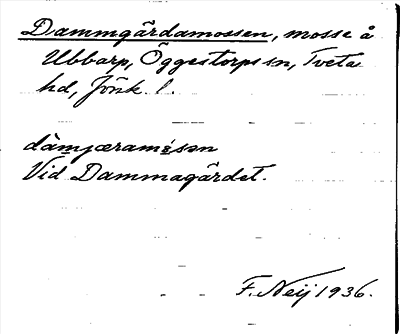 Dammgårdamossen, mosse å
Ubbarp, Öggestorps sn, Tveta
hd, Jönk. l.
dàmjæramósən
Vid Dammagärdet.
F. Neij 1936.